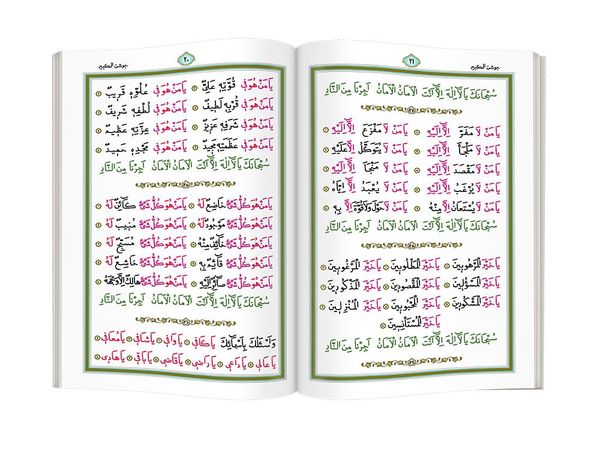 جوشن الكبير ٢٠
يَا مَنْ هُوَ فِي قُوَّتِهِ عَلِيٌّ يَا مَنْ هُوَ فِي عُلُوِّهِ قَرِيبٌ
يَا مَنْ هُوَ فِي قُرْبِهِ لَطِيفٌ يَا مَنْ هُوَ فِي لُطْفِهِ شَرِيفٌ
يَا مَنْ هُوَ فِي شَرَفِهِ عَزِيزٌ يَا مَنْ هُوَ فِي عِزَّتِهِ عَظِيمٌ
يَا مَنْ هُوَ فِي عَظَمَتِهِ مَجِيدٌ يَا مَنْ هُوَ فِي مَجْدِهِ حَمِيدٌ
سُبْحَانَكَ يَا لَا إِلٰهَ إِلَّا أَنْتَ الْأَمَانُ الْأَمَانُ أَجِرْنَا مِنَ النَّارِ
يَا مَنْ هُوَ كُلُّ شَيْءٍ خَاضِعٌ لَهُ يَا مَنْ هُوَ كُلُّ شَيْءٍ كَائِنٌ لَهُ
يَا مَنْ هُوَ كُلُّ شَيْءٍ مَوْجُودٌ لَهُ يَا مَنْ هُوَ كُلُّ شَيْءٍ مُنِيبٌ لَهُ
يَا مَنْ هُوَ كُلُّ شَيْءٍ خَائِفٌ مِنْهُ يَا مَنْ هُوَ كُلُّ شَيْءٍ مُسَبِّحٌ لَهُ
يَا مَنْ هُوَ كُلُّ شَيْءٍ قَائِمٌ بِهِ يَا مَنْ هُوَ كُلُّ شَيْءٍ خَاشِعٌ لَهُ
يَا مَنْ هُوَ كُلُّ شَيْءٍ صَائِرٌ إِلَيْهِ يَا مَنْ هُوَ كُلُّ شَيْءٍ هَالِكٌ إِلَّا وَجْهَهُ
سُبْحَانَكَ يَا لَا إِلٰهَ إِلَّا أَنْتَ الْأَمَانُ الْأَمَانُ أَجِرْنَا مِنَ النَّارِ
وَأَسْئَلُكَ بِأَسْمَائِكَ يَا كَافِي يَا وَافِي يَا شَافِي يَا مُعَافِي
يَا عَالِي يَا دَاعِي يَا رَاضِي يَا قَاضِي يَا بَاقِي يَا هَادِي
جوشن الكبير ٢١
سُبْحَانَكَ يَا لَا إِلٰهَ إِلَّا أَنْتَ الْأَمَانُ الْأَمَانُ أَجِرْنَا مِنَ النَّارِ
يَا مَنْ لَا مَفَرَّ إِلَّا إِلَيْهِ يَا مَنْ لَا مَفْزَعَ إِلَّا إِلَيْهِ
يَا مَنْ لَا مَلْجَأَ إِلَّا إِلَيْهِ يَا مَنْ لَا يُتَوَكَّلُ إِلَّا عَلَيْهِ
يَا مَنْ لَا مَقْصَدَ إِلَّا إِلَيْهِ يَا مَنْ لَا مَنْجَأَ إِلَّا إِلَيْهِ
يَا مَنْ لَا يُرْغَبُ إِلَّا إِلَيْهِ يَا مَنْ لَا يُعْبَدُ إِلَّا إِيَّاهُ
يَا مَنْ لَا يُسْتَعَانُ إِلَّا مِنْهُ يَا مَنْ لَا حَوْلَ وَلَا قُوَّةَ إِلَّا بِهِ
سُبْحَانَكَ يَا لَا إِلٰهَ إِلَّا أَنْتَ الْأَمَانُ الْأَمَانُ أَجِرْنَا مِنَ النَّارِ
يَا خَيْرَ الْمَرْهُوبِينَ يَا خَيْرَ الْمَطْلُوبِينَ يَا خَيْرَ الْمَرْغُوبِينَ
يَا خَيْرَ الْمَسْؤُلِينَ يَا خَيْرَ الْمَقْصُودِينَ يَا خَيْرَ الْمَذْكُورِينَ
يَا خَيْرَ الْمَشْكُورِينَ يَا خَيْرَ الْمَحْبُوبِينَ يَا خَيْرَ الْمُنْزِلِينَ
يَا خَيْرَ الْمُسْتَأْنِسِينَ
سُبْحَانَكَ يَا لَا إِلٰهَ إِلَّا أَنْتَ الْأَمَانُ الْأَمَانُ أَجِرْنَا مِنَ النَّارِ